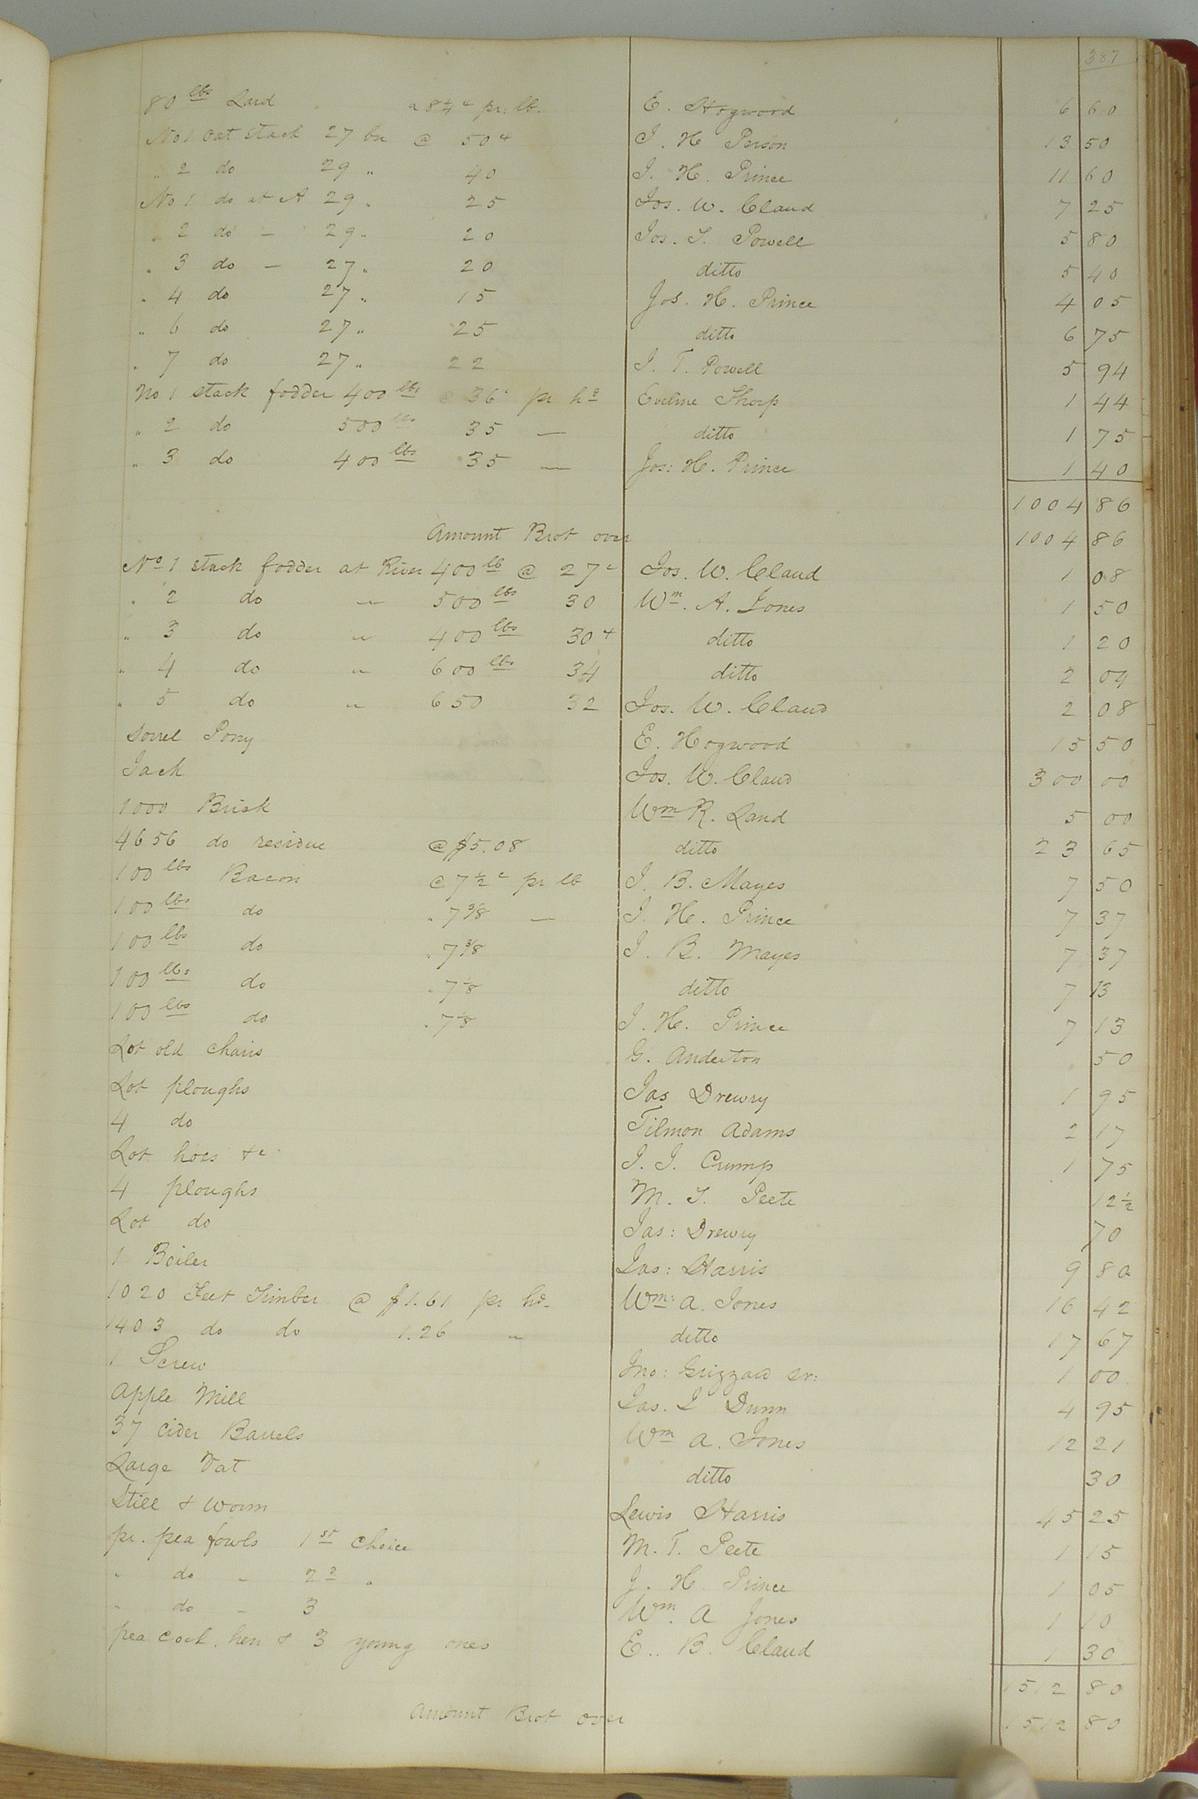 387
80 lbs Lard a 8¼ c pr. lb. E. Hogwood 6 60
No 1 oat stack 27 bu @ 50 c J. H. Person 13 50
" 2 do 29 " 40 J. H. Prince 11 60
No 1 do at A 29 " 25 Jos. W. Claud 7 25
" 2 do - 29 " 20 Jos. T. Powell 5 80
" 3 do - 27 " 20 ditto 5 40
" 4 do 27 " 15 Jos. H. Prince 4 05
" 6 do 27 " 25 ditto 6 75
" 7 do 27 " 22 J. T. Powell 5 94
No 1 stack fodder 400 lbs @ 36 c pr hd Eveline Thorp 1 44
" 2 do 500 lbs 35 — ditto 1 75
" 3 do 400 lbs 35 — Jos: H. Prince 1 40
1004 86
Amount Brot over 1004 86
No 1 stack fodder at River 400 lb @ 27 c Jos. W. Claud 1 08
" 2 do " 500 lbs 30 Wm. A. Jones 1 50
" 3 do " 400 lbs 30 c ditto 1 20
" 4 do " 600 lbs 34 ditto 2 04
" 5 do " 650 32 Jos. W. Claud 2 08
Sorrel Pony E. Hogwood 15 50
Jack Jos. W. Claud 300 00
1000 Brick Wm R. Land 5 00
4656 do residue @ $5.08 ditto 23 65
100 lbs Bacon @ 7½ c pr lb J. B. Mayes 7 50
100 lbs do " 7⅜ — J. H. Prince 7 37
100 lbs do " 7⅜ J. B. Mayes 7 37
100 lbs do " 7⅛ ditto 7 13
100 lbs do " 7⅛ J. H. Prince 7 13
Lot old chairs G. Anderton 50
Lot ploughs Jas Drewry 1 95
4 do Tilmon Adams 2 17
Lot hoes &c J. J. Crump 1 75
4 ploughs M. T. Peete 12½
Lot do Jas: Drewry 70
1 Boiler Jas: Harris 9 80
1020 Feet Timber @ $1.61 pr hd. Wm: A. Jones 16 42
1403 do do 1.26 " ditto 17 67
1 Screw Jno: Grizzard Sr: 1 00
Apple Mill Jas. L Dunn 4 95
37 Cider Barrels Wm A. Jones 12 21
Large Vat ditto 30
Still & Worm Lewis Harris 45 25
pr. pea fowls 1st Choice M. T. Peete 1 15
" do - 2d " J. H. Prince 1 05
" do - 3 Wm. A Jones 1 10
pea cock, hen & 3 young ones E. B. Claud 1 30
1512 80
Amount Brot over 1512 80